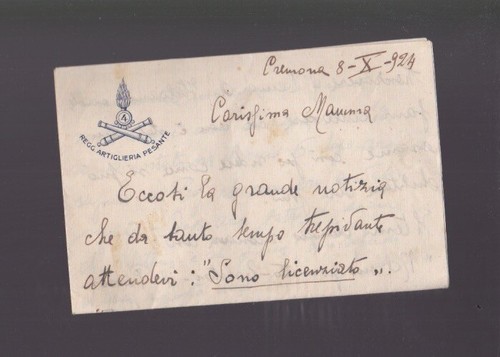 Cremona 8-X-924
4
REGG. ARTIGLIERIA PESANTE
Carissima Mamma
Eccoti la grande notizia
che da tanto tempo trepidante
attendevi: "Sono licenziato".